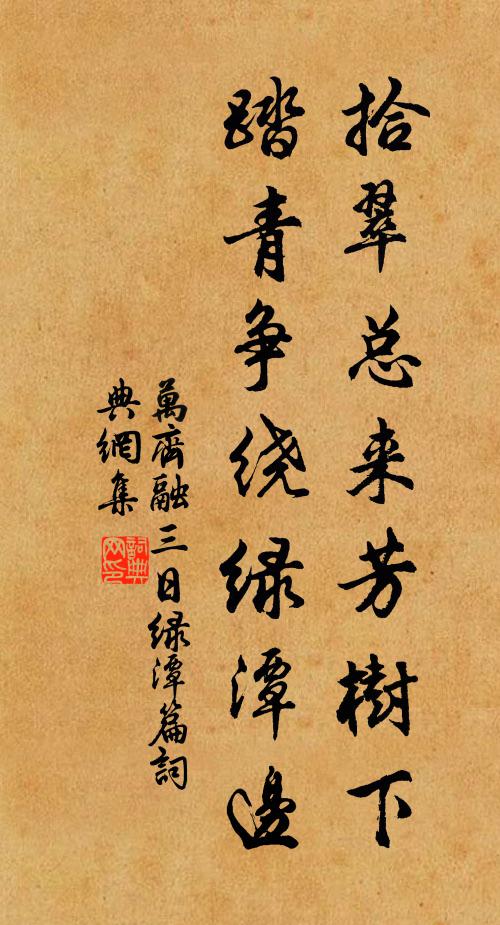 拾翠总来芳樹下
踏青争绕绿潭邊
萬齊融三日绿潭篇詞
典網集
詞典
网印